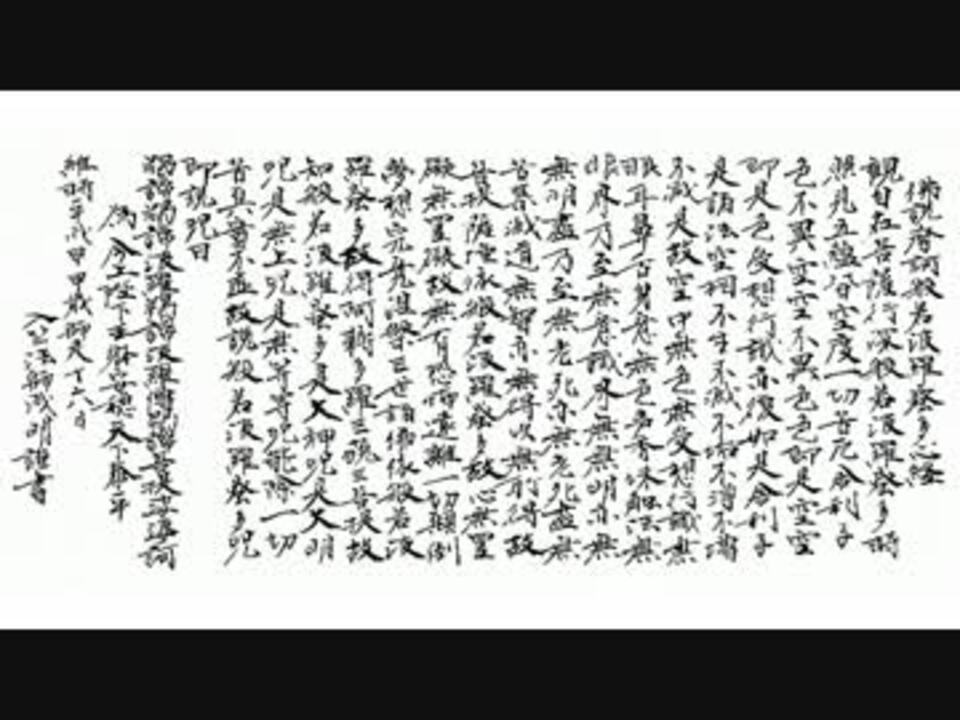 佛說摩訶般若波羅蜜多心経
観自在菩薩行深般若波羅蜜多時
照見五蘊皆空度一切苦厄舍利子
色不異空空不異色色即是空空
即是色受想行識亦復如是舍利子
是諸法空相不生不滅不垢不淨不增
不減是故空中無色無受想行識無
眼耳鼻舌身意無色声香味触法無
眼界乃至無意識界無無明亦無
無明盡乃至無老死亦無老死盡無
苦集滅道無智亦無得以無所得故
菩提薩埵依般若波羅蜜多故心無罣
礙無罣礙故無有恐怖遠離一切顛倒
夢想究竟涅槃三世諸佛依般若波
羅蜜多故得阿耨多羅三藐三菩提故
知般若波羅蜜多是大神呪是大明
呪是無上呪是無等等呪能除一切
苦真實不虛故說般若波羅蜜多呪
即說呪曰
羯諦羯諦波羅羯諦波羅僧羯諦菩提娑婆訶
為今上陛下玉躰安穏天下泰平
維時平成甲戌師走十六日
法師誠明謹書